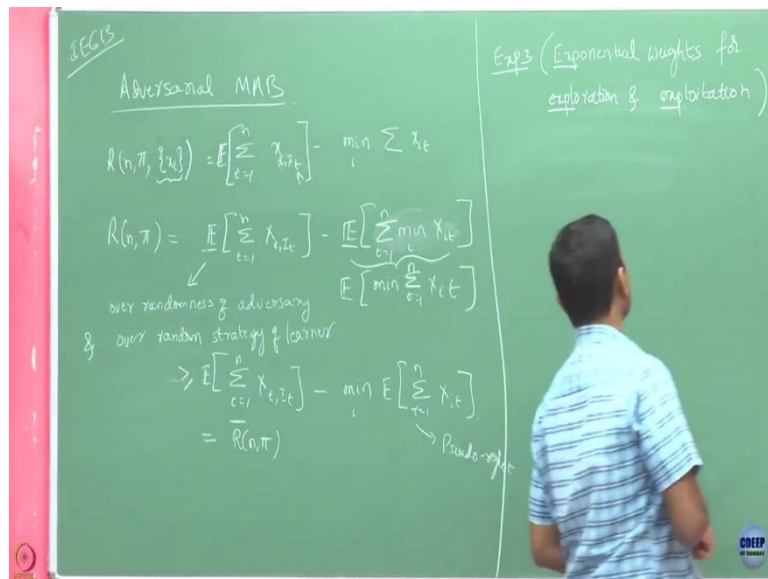 IE613
Adversarial MAB
R(n, π, {x_t}) = E[∑_{t=1}^{n} x_{t,I_t}] - min_i ∑ x_{it}
R(n, π) = E[∑_{t=1}^{n} X_{t,I_t}] - E[∑_{t=1}^{n} min_i X_{it}]
E[min_i ∑_{t=1}^{n} X_{it}]
over randomness of adversary
& over random strategy of learner
≥ E[∑_{t=1}^{n} X_{t,I_t}] - min_i E[∑_{t=1}^{n} X_{it}]
= R̄(n,π)
Pseudo-regret
Exp3 (Exponential weights for
exploration & exploitation)
CDEEP
IIT BOMBAY